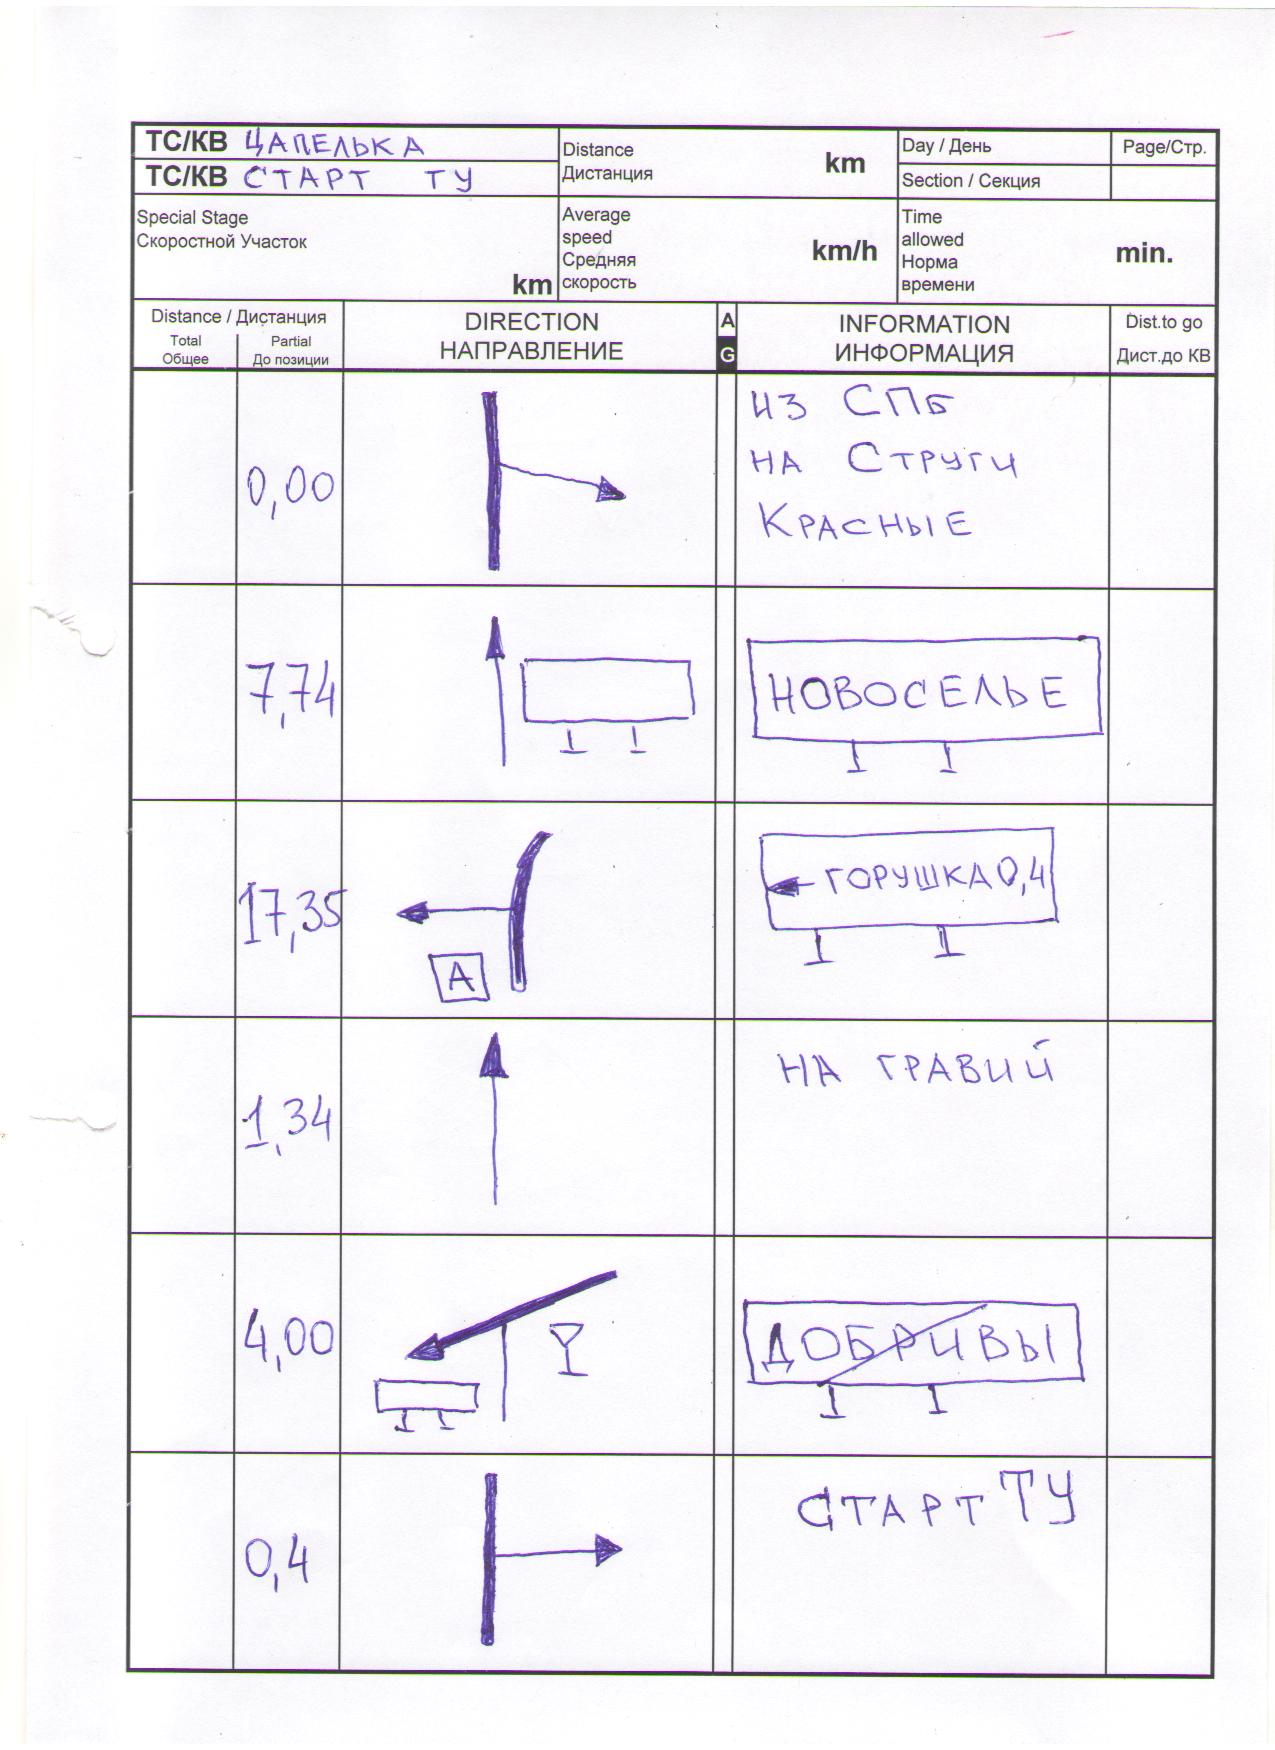 ТС/КВ ЦАПЕЛЬКА
ТС/КВ СТАРТ ТУ
Distance
Дистанция
km
Day / День
Section / Секция
Page/Стр.
Special Stage
Скоростной Участок
km
Average
speed
Средняя
скорость
km/h
Time
allowed
Норма
времени
min.
Distance / Дистанция
Total
Общее
Partial
До позиции
DIRECTION
НАПРАВЛЕНИЕ
A
G
INFORMATION
ИНФОРМАЦИЯ
Dist.to go
Дист.до КВ
0,00
ИЗ СПБ
НА СТРУГИ
КРАСНЫЕ
7,74
НОВОСЕЛЬЕ
17,35
А
ГОРУШКА 0,4
1,34
НА ГРАВИЙ
4,00
ДОБРИВЫ
0,4
СТАРТ ТУ